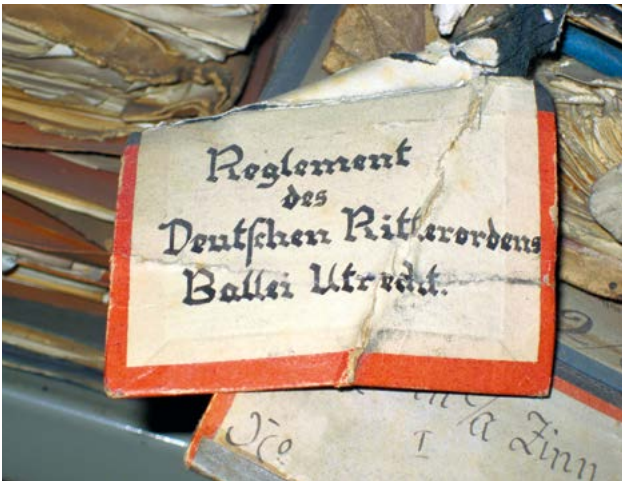 Reglement
des
Deutschen Ritterordens
Ballei Utrecht.
a Zinn
No I